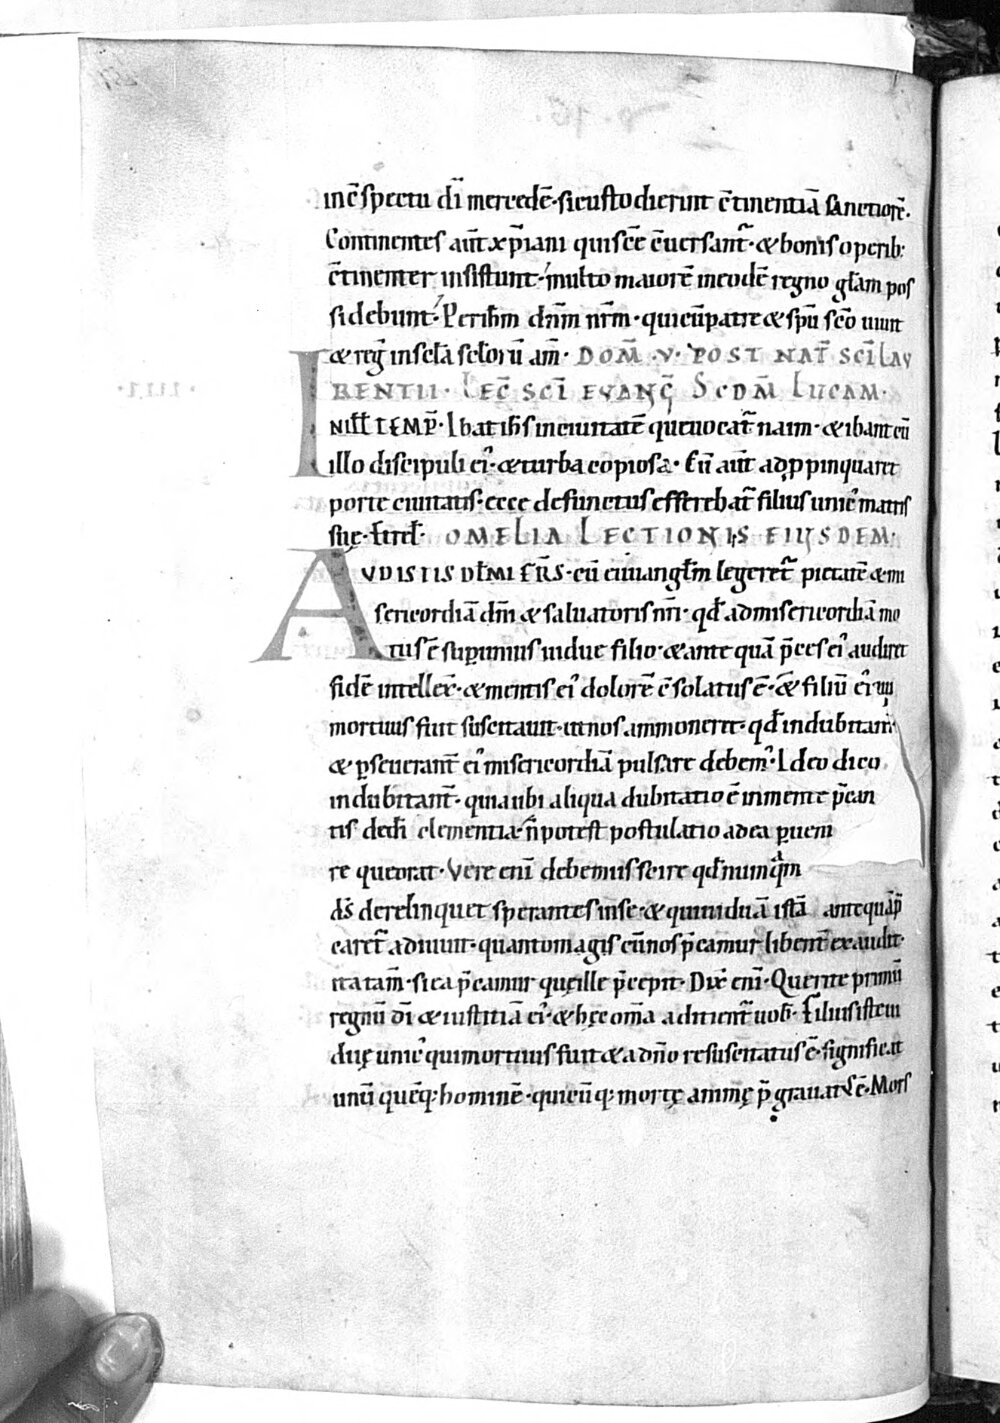 in c̄spectu dī mercedē· si custodierint c̄tinentiā sanctiorē·
Continentes aut̄ xp̄iani qui sc̄e c̄uersant᷑· & bonis operib;
c̄tinenter insistunt· multo maiorē in eodē regno gl̄am pos
sidebunt· Per ih̄m dn̄m nr̄m· qui cū patre & sp̄u sc̄o uiuit
& reḡ in sc̄la sc̄lorū am̄· DOM̄· V· POST NAT̄ SCĪ LAV
RENTII· LEC̄ SCĪ EVANḠ SCDM̄ LUCAM·
IN ILL̄ TEMP̄· Ibat ih̄s in ciuitatē que uocat᷑ naim· & ibant cū
illo discipuli ei᷒· & turba copiosa· Cū aut̄ adp̱pinquaret
porte ciuitatis· ecce defunctus efferebat᷑ filius unic᷒ matris
suę· Et rel̄· OMELIA LECTIONIS EIUSDEM·
AVDISTIS DL̄MI FR̄S· cū euuangl̄m legeret᷑ pietatē & mi
sericordiā dn̄i & saluatoris nr̄i· qd̄ ad misericordiā mo
tus ē sup unius uidue filio· & ante quā p̄ces ei᷒ audiret
fidē intellex̄· & mentis ei᷒ dolorē c̄solatus ē· & filiū ei᷒ qui
mortuus fuit suscitauit· ut nos ammoneret· qd̄ indubitant̄
& p̱seuerant̄ ei᷒ misericordiā pulsare debem᷒· Ideo dico
indubitant̄· quia ubi aliqua dubitatio ē in mente p̄can
tis dedi clementia· n̄ potest postulatio ad ea p̱uem
re que orat· Vere enī debemus scire qd̄ nunquā
ds̄ derelinquet sperantes in se· & qui uiduā istā antequā p̄
caret᷑ adiuuit· quanto magis cū nos p̄camur libent̄ exaudit·
ita tam̄· si ea p̄camur quę ille p̄cepit· Dix̄ enī· Querite primū
regnū dī & iustitiā ei᷒· & hęc om̄a adicient᷑ uob̄· Filius iste ui
duę unic᷒ qui mortuus fuit & a dn̄o resuscitatus ē· significat
unū quēq; hominē· qui cūq; mortę animę p̄grauatus ē· Mors